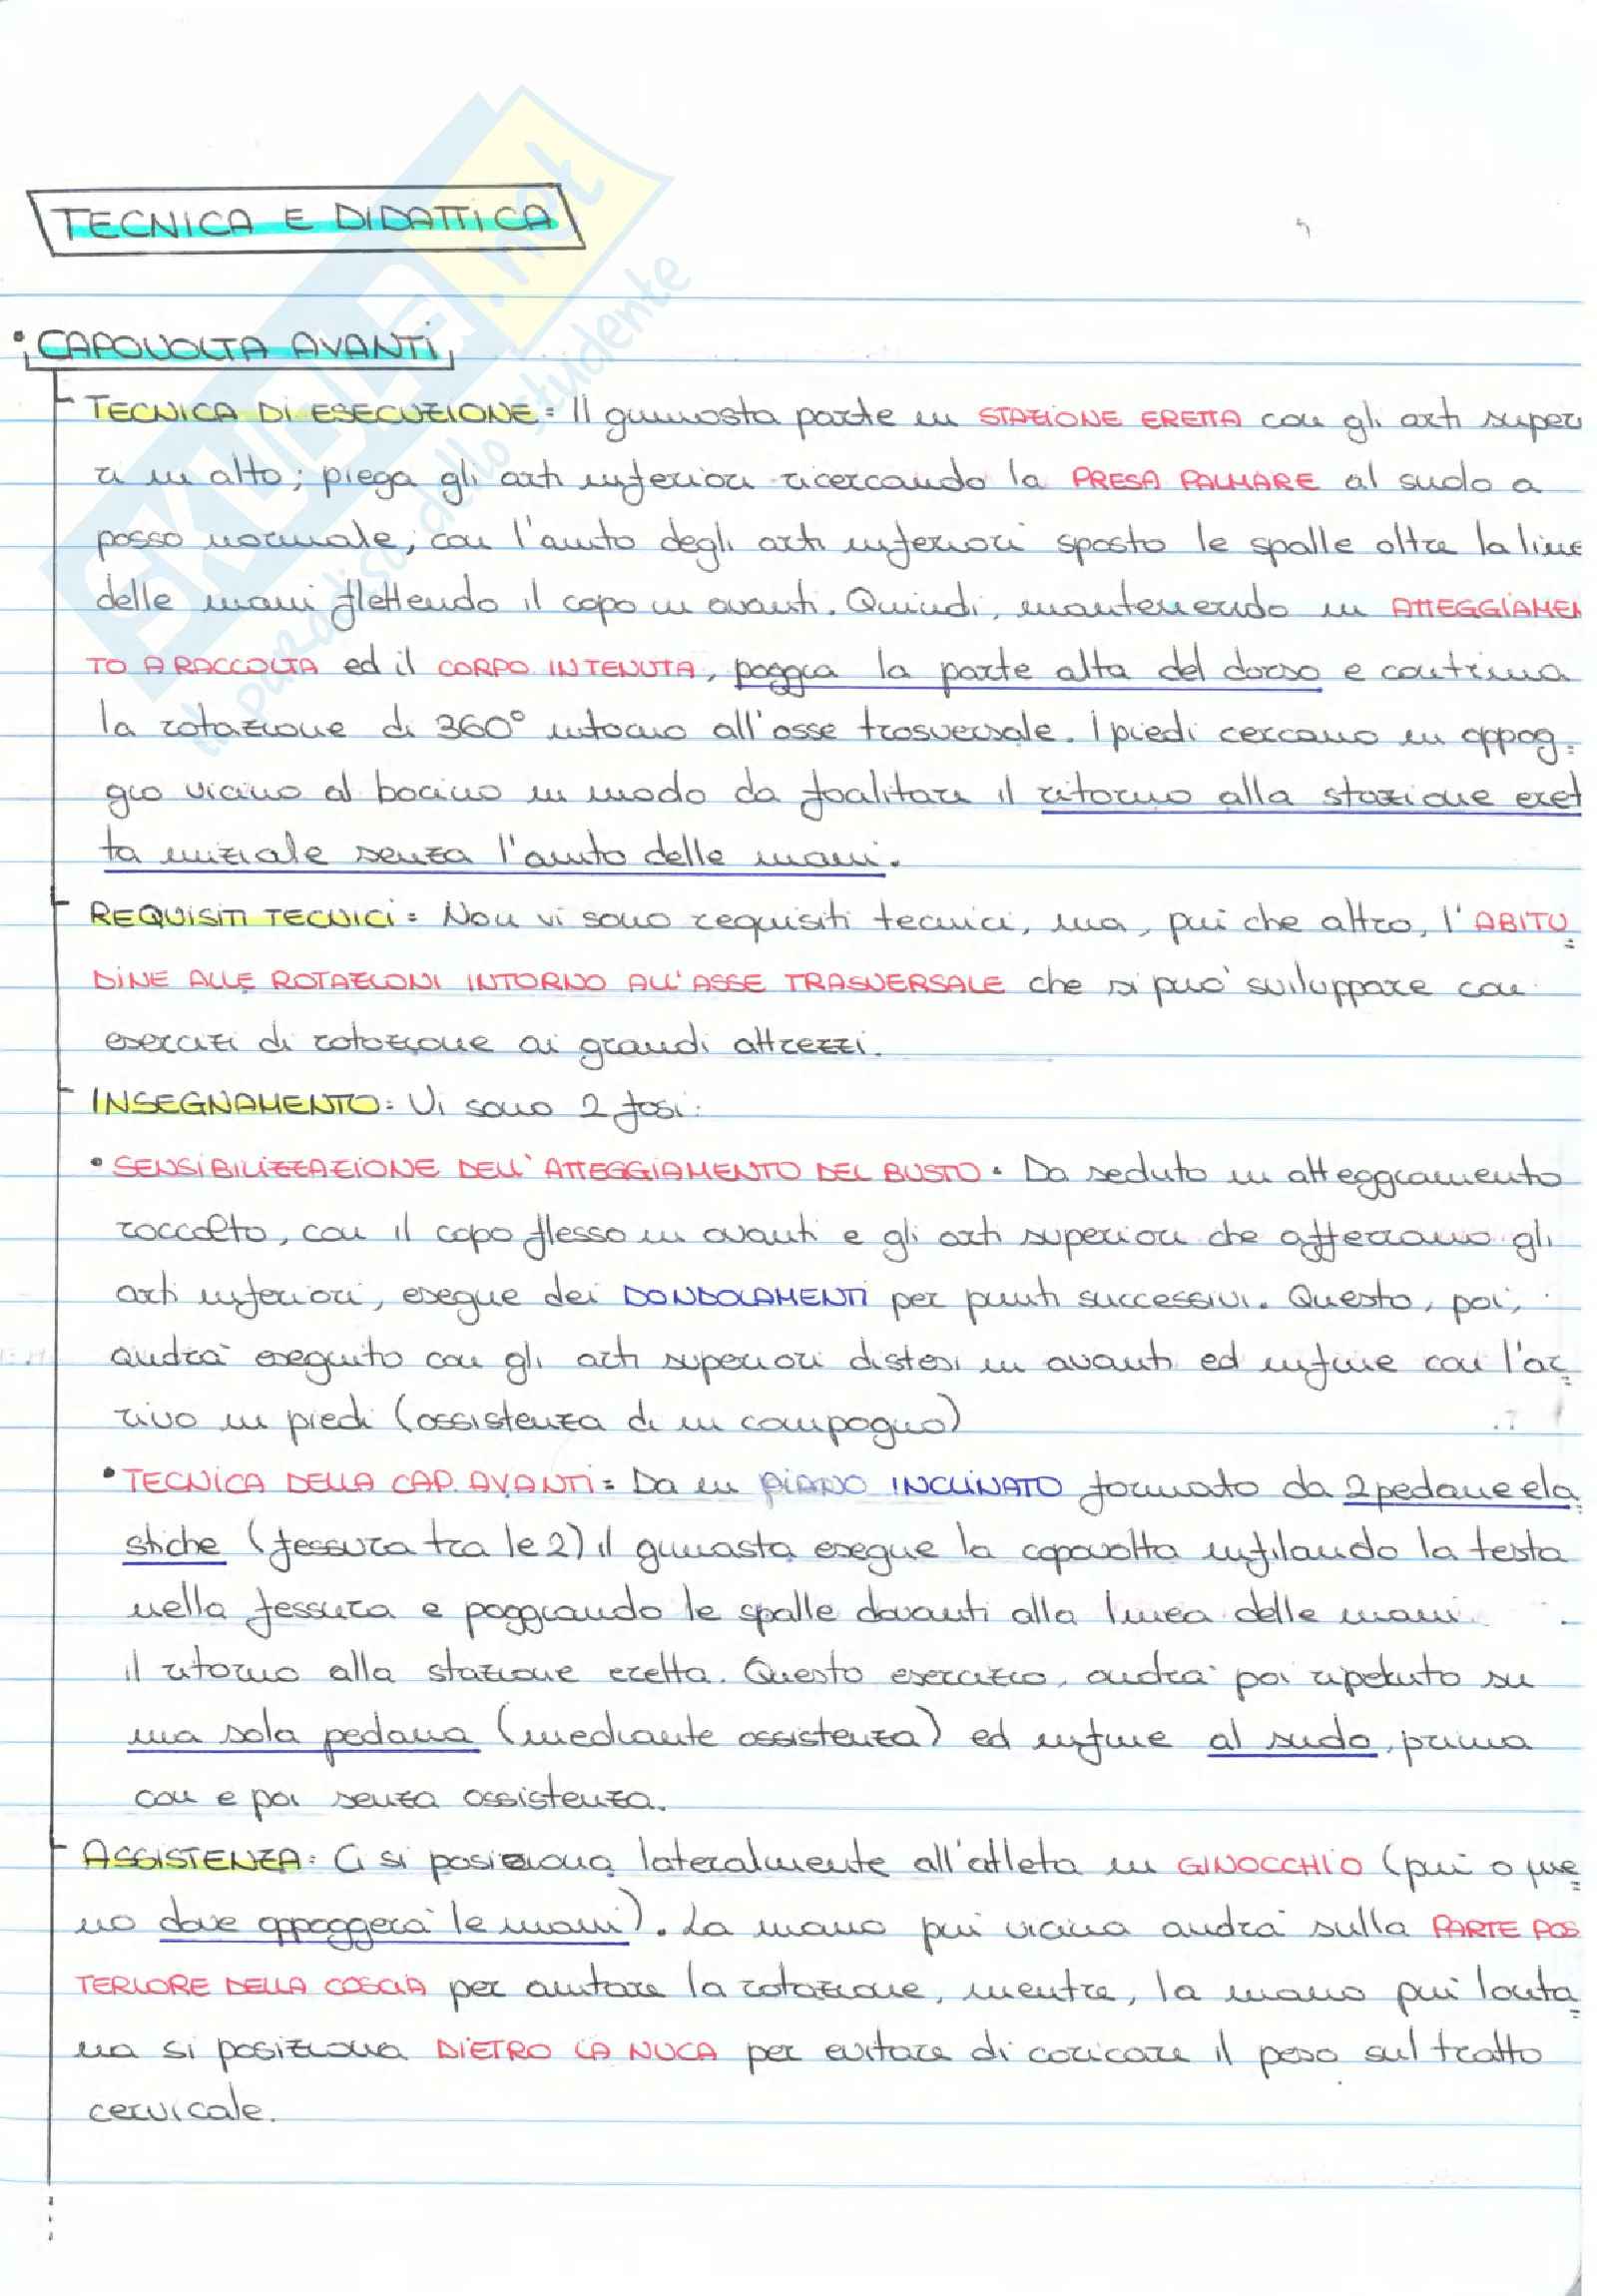 TECNICA E DIDATTICA
• CAPOVOLTA AVANTI
- TECNICA DI ESECUZIONE = Il ginnasta parte in STAZIONE ERETTA con gli arti superio
ri in alto; piega gli arti inferiori ricercando la PRESA PALMARE al suolo a
passo normale; con l'aiuto degli arti inferiori sposta le spalle oltre la linea
delle mani flettendo il capo in avanti. Quindi, mantenendo un ATTEGGIAMEN
TO A RACCOLTA ed il CORPO IN TENUTA, poggia la parte alta del dorso e continua
la rotazione di 360° intorno all'asse trasversale. I piedi cercano un appog=
gio vicino al bacino in modo da facilitare il ritorno alla stazione eret
ta iniziale senza l'aiuto delle mani.
- REQUISITI TECNICI = Non vi sono requisiti tecnici, ma, più che altro, l'ABITU=
DINE ALLE ROTAZIONI INTORNO ALL'ASSE TRASVERSALE che si può sviluppare con
esercizi di rotazione ai grandi attrezzi.
- INSEGNAMENTO = Vi sono 2 fasi:
• SENSIBILIZZAZIONE DELL'ATTEGGIAMENTO DEL BUSTO = Da seduto in atteggiamento
raccolto, con il capo flesso in avanti e gli arti superiori che afferrano gli
arti inferiori, esegue dei DONDOLAMENTI per punti successivi. Questo, poi,
andrà eseguito con gli arti superiori distesi in avanti ed infine con l'ar=
rivo in piedi (assistenza di un compagno)
• TECNICA DELLA CAP. AVANTI = Da un PIANO INCLINATO formato da 2 pedane ela
stiche (fessura tra le 2) il ginnasta esegue la capovolta infilando la testa
nella fessura e poggiando le spalle davanti alla linea delle mani.
il ritorno alla stazione eretta. Questo esercizio, andrà poi ripetuto su
una sola pedana (mediante assistenza) ed infine al suolo, prima
con e poi senza assistenza.
- ASSISTENZA: Ci si posiziona lateralmente all'atleta in GINOCCHIO (più o me=
no dove appoggerà le mani). La mano più vicina andrà sulla PARTE POS
TERIORE DELLA COSCIA per aiutare la rotazione, mentre, la mano più lonta=
na si posiziona DIETRO LA NUCA per evitare di caricare il peso sul tratto
cervicale.
SKUOLA.net
il paradiso dello studente